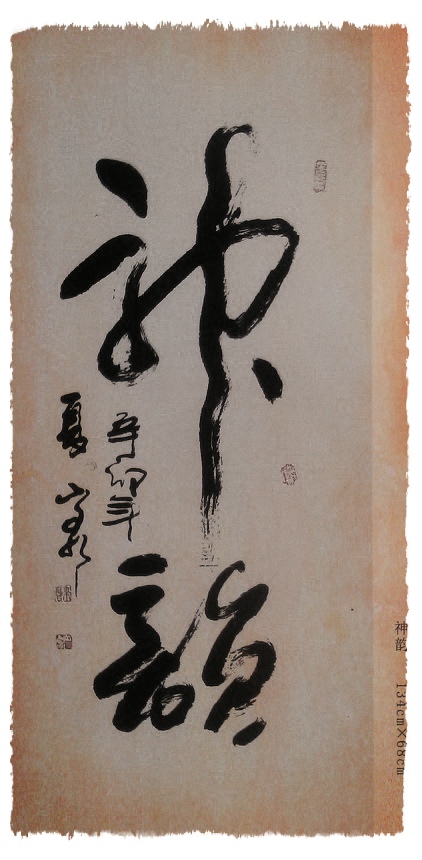 神韵
辛卯年
夏
神韵 134cm×68cm